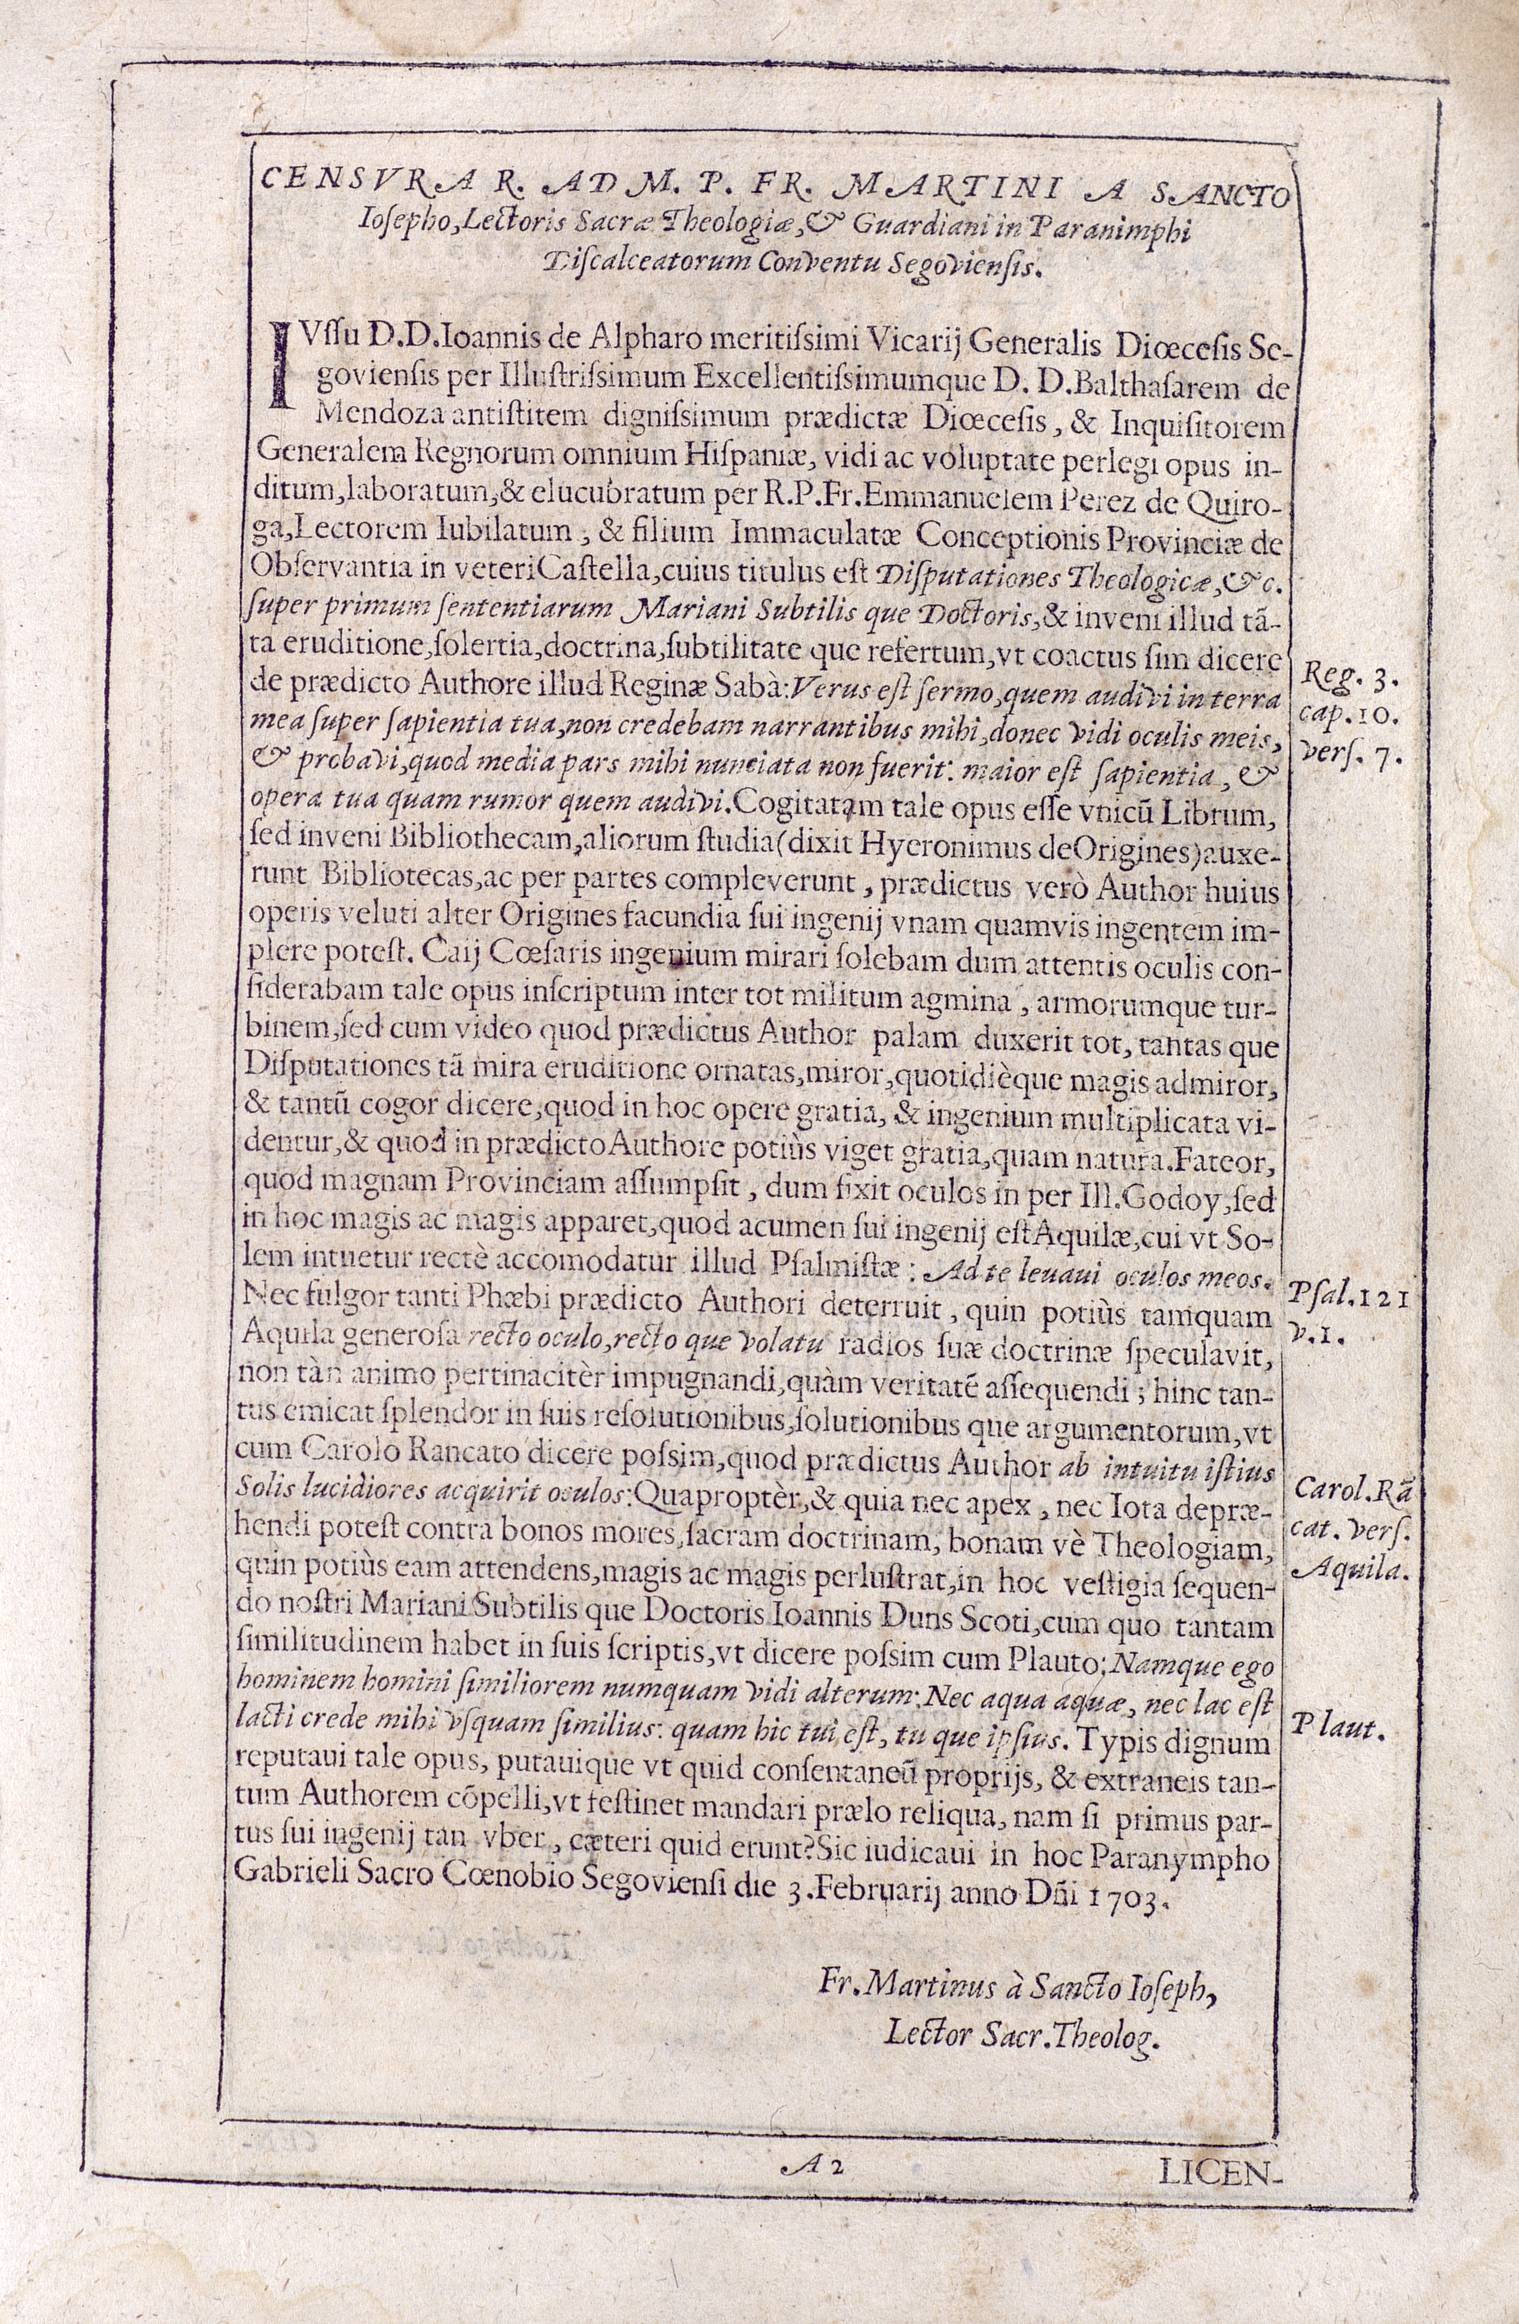 CENSVRA R. ADM. P. FR. MARTINI A SANCTO
Ioſepho, Lectoris Sacræ Theologiæ, & Guardiani in Paranimphi
Diſcalceatorum Conventu Segovienſis.
IVſſu D.D.Ioannis de Alpharo meritiſsimi Vicarij Generalis Diœceſis Se-
govienſis per Illuſtriſsimum Excellentiſsimumque D. D.Balthaſarem de
Mendoza antiſtitem digniſsimum prædictæ Diœceſis, & Inquiſitorem
Generalem Regnorum omnium Hiſpaniæ, vidi ac voluptate perlegi opus in-
ditum,laboratum,& elucubratum per R.P.Fr.Emmanuelem Perez de Quiro-
ga,Lectorem Iubilatum, & filium Immaculatæ Conceptionis Provinciæ de
Obſervantia in veteri Caſtella,cuius titulus eſt Diſputationes Theologicæ,&c.
ſuper primum ſententiarum Mariani Subtilis que Doctoris,& inveni illud tã-
ta eruditione,ſolertia,doctrina,ſubtilitate que refertum,vt coactus ſim dicere
de prædicto Authore illud Reginæ Sabà:Verus eſt ſermo,quem audivi in terra
mea ſuper ſapientia tua,non credebam narrantibus mihi,donec vidi oculis meis,
& probavi,quod media pars mihi nunciata non fuerit: maior eſt ſapientia, &
opera tua quam rumor quem audivi.Cogitatam tale opus eſſe vnicũ Librum,
ſed inveni Bibliothecam,aliorum ſtudia(dixit Hyeronimus de Origines)auxe-
runt Bibliotecas,ac per partes compleverunt, prædictus verò Author huius
operis veluti alter Origines facundia ſui ingenij vnam quamvis ingentem im-
plere poteſt. Caij Cœſaris ingenium mirari ſolebam dum attentis oculis con-
ſiderabam tale opus inſcriptum inter tot militum agmina, armorumque tur-
binem,ſed cum video quod prædictus Author palam duxerit tot, tantas que
Diſputationes tã mira eruditione ornatas,miror,quotidièque magis admiror,
& tantũ cogor dicere,quod in hoc opere gratia, & ingenium multiplicata vi-
dentur,& quod in prædicto Authore potiùs viget gratia,quam natura.Fateor,
quod magnam Provinciam aſſumpſit, dum fixit oculos in per Ill.Godoy,ſed
in hoc magis ac magis apparet,quod acumen ſui ingenij eſt Aquilæ,cui vt So-
lem intuetur rectè accomodatur illud Pſalmiſtæ: Ad te leuaui oculos meos.
Nec fulgor tanti Phæbi prædicto Authori deterruit, quin potiùs tamquam
Aquila generoſa recto oculo,recto que volatu radios ſuæ doctrinæ ſpeculavit,
non tàn animo pertinacitèr impugnandi,quàm veritatẽ aſſequendi; hinc tan-
tus emicat ſplendor in ſuis reſolutionibus,ſolutionibus que argumentorum,vt
cum Carolo Rancato dicere poſsim,quod prædictus Author ab intuitu iſtius
Solis lucidiores acquirit oculos:Quaproptèr,& quia nec apex, nec Iota depræ-
hendi poteſt contra bonos mores,ſacram doctrinam, bonam vè Theologiam,
quin potiùs eam attendens,magis ac magis perluſtrat,in hoc veſtigia ſequen-
do noſtri Mariani Subtilis que Doctoris Ioannis Duns Scoti,cum quo tantam
ſimilitudinem habet in ſuis ſcriptis,vt dicere poſsim cum Plauto;Namque ego
hominem homini ſimiliorem numquam vidi alterum: Nec aqua aquæ, nec lac eſt
lacti crede mihi vſquam ſimilius: quam hic tui eſt, tu que ipſius. Typis dignum
reputaui tale opus, putauique vt quid conſentaneũ proprijs, & extraneis tan-
tum Authorem cõpelli,vt feſtinet mandari prælo reliqua, nam ſi primus par-
tus ſui ingenij tan vber, cæteri quid erunt?Sic iudicaui in hoc Paranympho
Gabrieli Sacro Cœnobio Segovienſi die 3.Februarij anno Dñi 1703.
Reg. 3.
cap.10.
verſ. 7.
Pſal.121
v.1.
Carol.Rã
cat. verſ.
Aquila.
Plaut.
Fr. Martinus à Sancto Ioſeph,
Lector Sacr.Theolog.
A2
LICEN-